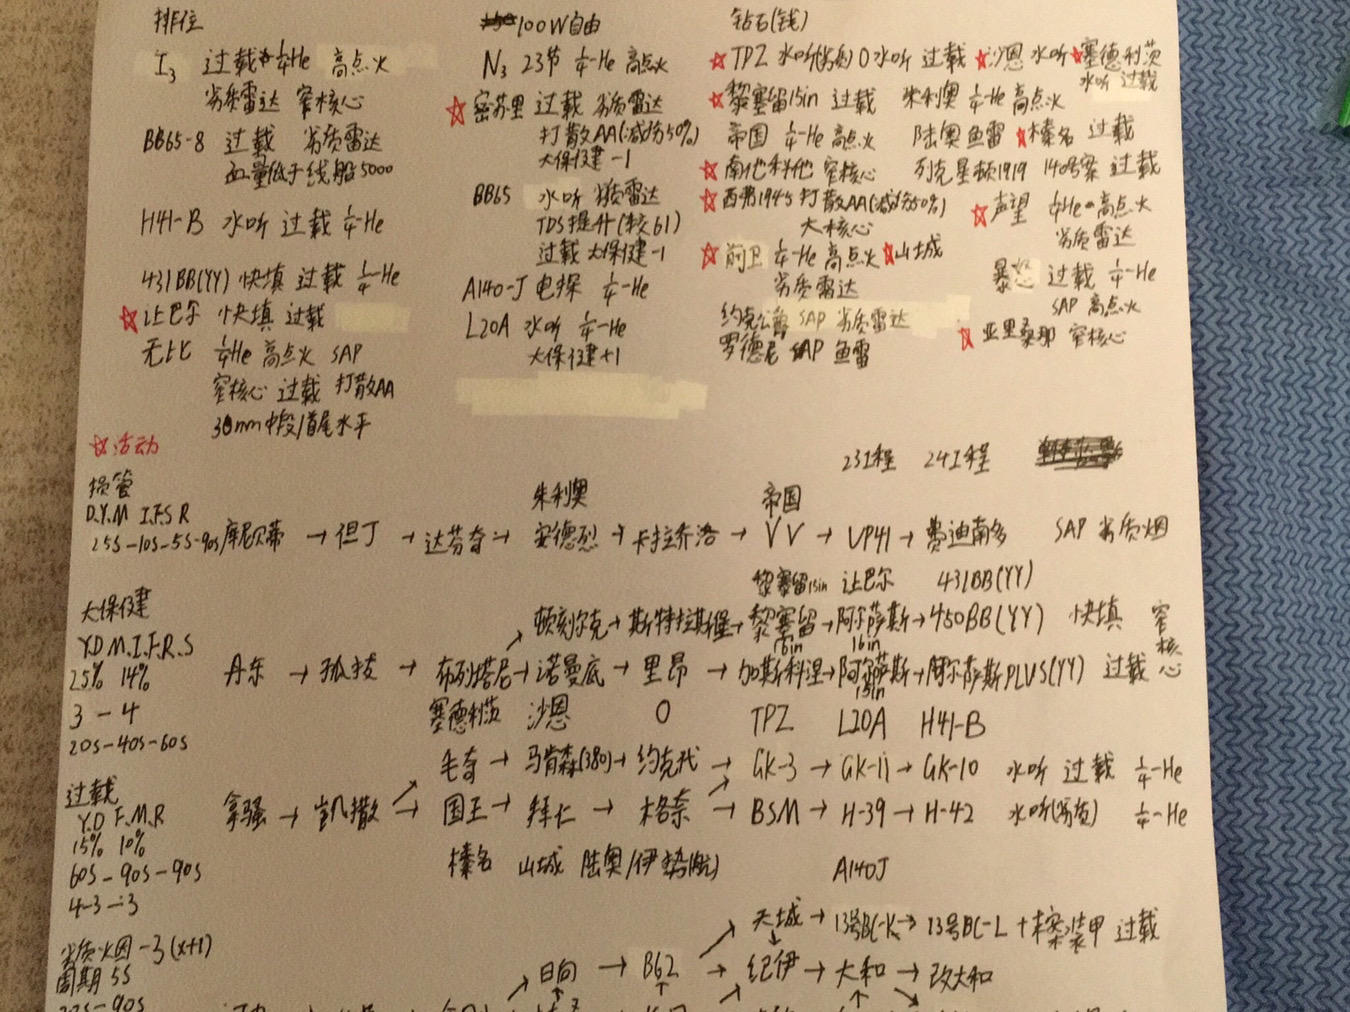 排位
I3 过载 ¼-He 高点火
劣质雷达 窄核心
BB65-8 过载 劣质雷达
血量低于线船5000
H41-B 水听 过载 ¼-He
431BB(YY) 快填 过载 ¼-He
☆让巴尔 快填 过载
无比 ¼He 高点火 SAP
窄核心 过载 打散AA
30mm中段/首尾水平
☆活动
100W自由
N3 23节 ¼-He 高点火
☆密苏里 过载 劣质雷达
打散AA(减伤50%)
大保健-1
BB65 水听 劣质雷达
TDS提升(较61)
过载 大保健-1
A140-J 电探 ¼-He
L20A 水听 ¼-He
大保健+1
钻石(钱)
☆TPZ 水听(劣质) O水听 过载 ☆沙恩 水听 ☆塞德利茨
水听 过载
☆黎塞留15in 过载 朱利奥 ¼-He 高点火
帝国 ¼-He 高点火 陆奥鱼雷 ☆榛名 过载
☆南他科他 窄核心 列克星顿1919 140号案 过载
☆西弗1945 打散AA(减伤50%)
大核心
☆声望 ¼He 高点火
劣质雷达
☆前卫 ¼-He 高点火 ☆山城
劣质雷达
暴怒 过载 ¼-He
SAP 高点火
约克公爵 SAP 劣质雷达
罗德尼 SAP 鱼雷
☆亚里桑那 窄核心
23工程 24工程
损管
D.Y.M I.F.S R
25S-10S-5S-90S
朱利奥 帝国
库尼贝蒂→但丁→达芬奇→安德烈→卡拉乔洛→VV→UP41→费迪南多 SAP 劣质烟
黎塞留15in 让巴尔 431BB(YY)
大保健
Y.D M.I.F.R.S
25% 14%
3-4
20S-40S-60S
顿刻尔克→斯特拉斯堡→黎塞留16in→阿尔萨斯16in→450BB(YY) 快填 窄核心
丹东→孤拔→布列塔尼→诺曼底→里昂→加斯科涅→阿尔萨斯15in→阿尔萨斯PLUS(YY) 过载
塞德利茨 沙恩 O TPZ L20A H41-B
毛奇→马肯森(380)→约克代→GK-3→GK-11→GK-10 水听 过载 ¼-He
过载
Y.D F.M.R
15% 10%
60S-90S-90S
4-3-3
拿骚→凯撒→国王→拜仁→格奈→BSM→H-39→H-42 水听(劣质) ¼-He
榛名 山城 陆奥/伊势(航) A140J
天城→13号BC-K→13号BC-L+装甲 过载
劣质火因-3(x+1)
周期5S
20S-90S
日向→B62→纪伊→大和→改大和